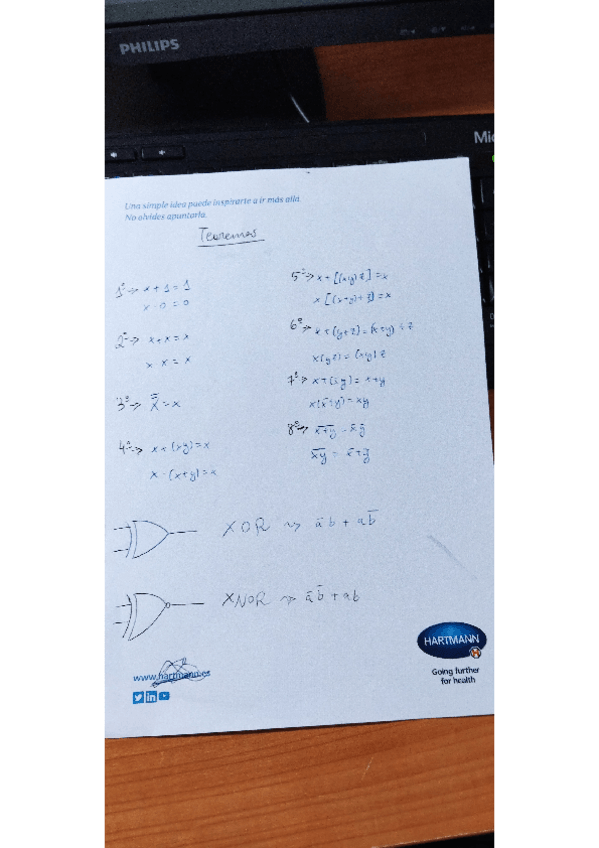 PHILIPS
Mi
Una simple idea puede inspirarte a ir más allá.
No olvides apuntarla.
Teoremas
1º → x + 1 = 1
x · 0 = 0
2º → x + x = x
x x = x
3º → x̿ = x
4º → x + (xy) = x
x · (x+y) = x
5º → x + [(xy) z] = x
x [(x+y) + z] = x
6º → x + (y+z) = (x+y) + z
x(yz) = (xy) z
7º → x + (x̄y) = x+y
x(x̄+y) = xy
8º → x̅+̅y̅ = x̄ ȳ
x̅y̅ = x̄ + ȳ
XOR → āb + ab̄
XNOR → āb̄ + ab
www.hartmann.es
HARTMANN
Going further
for health